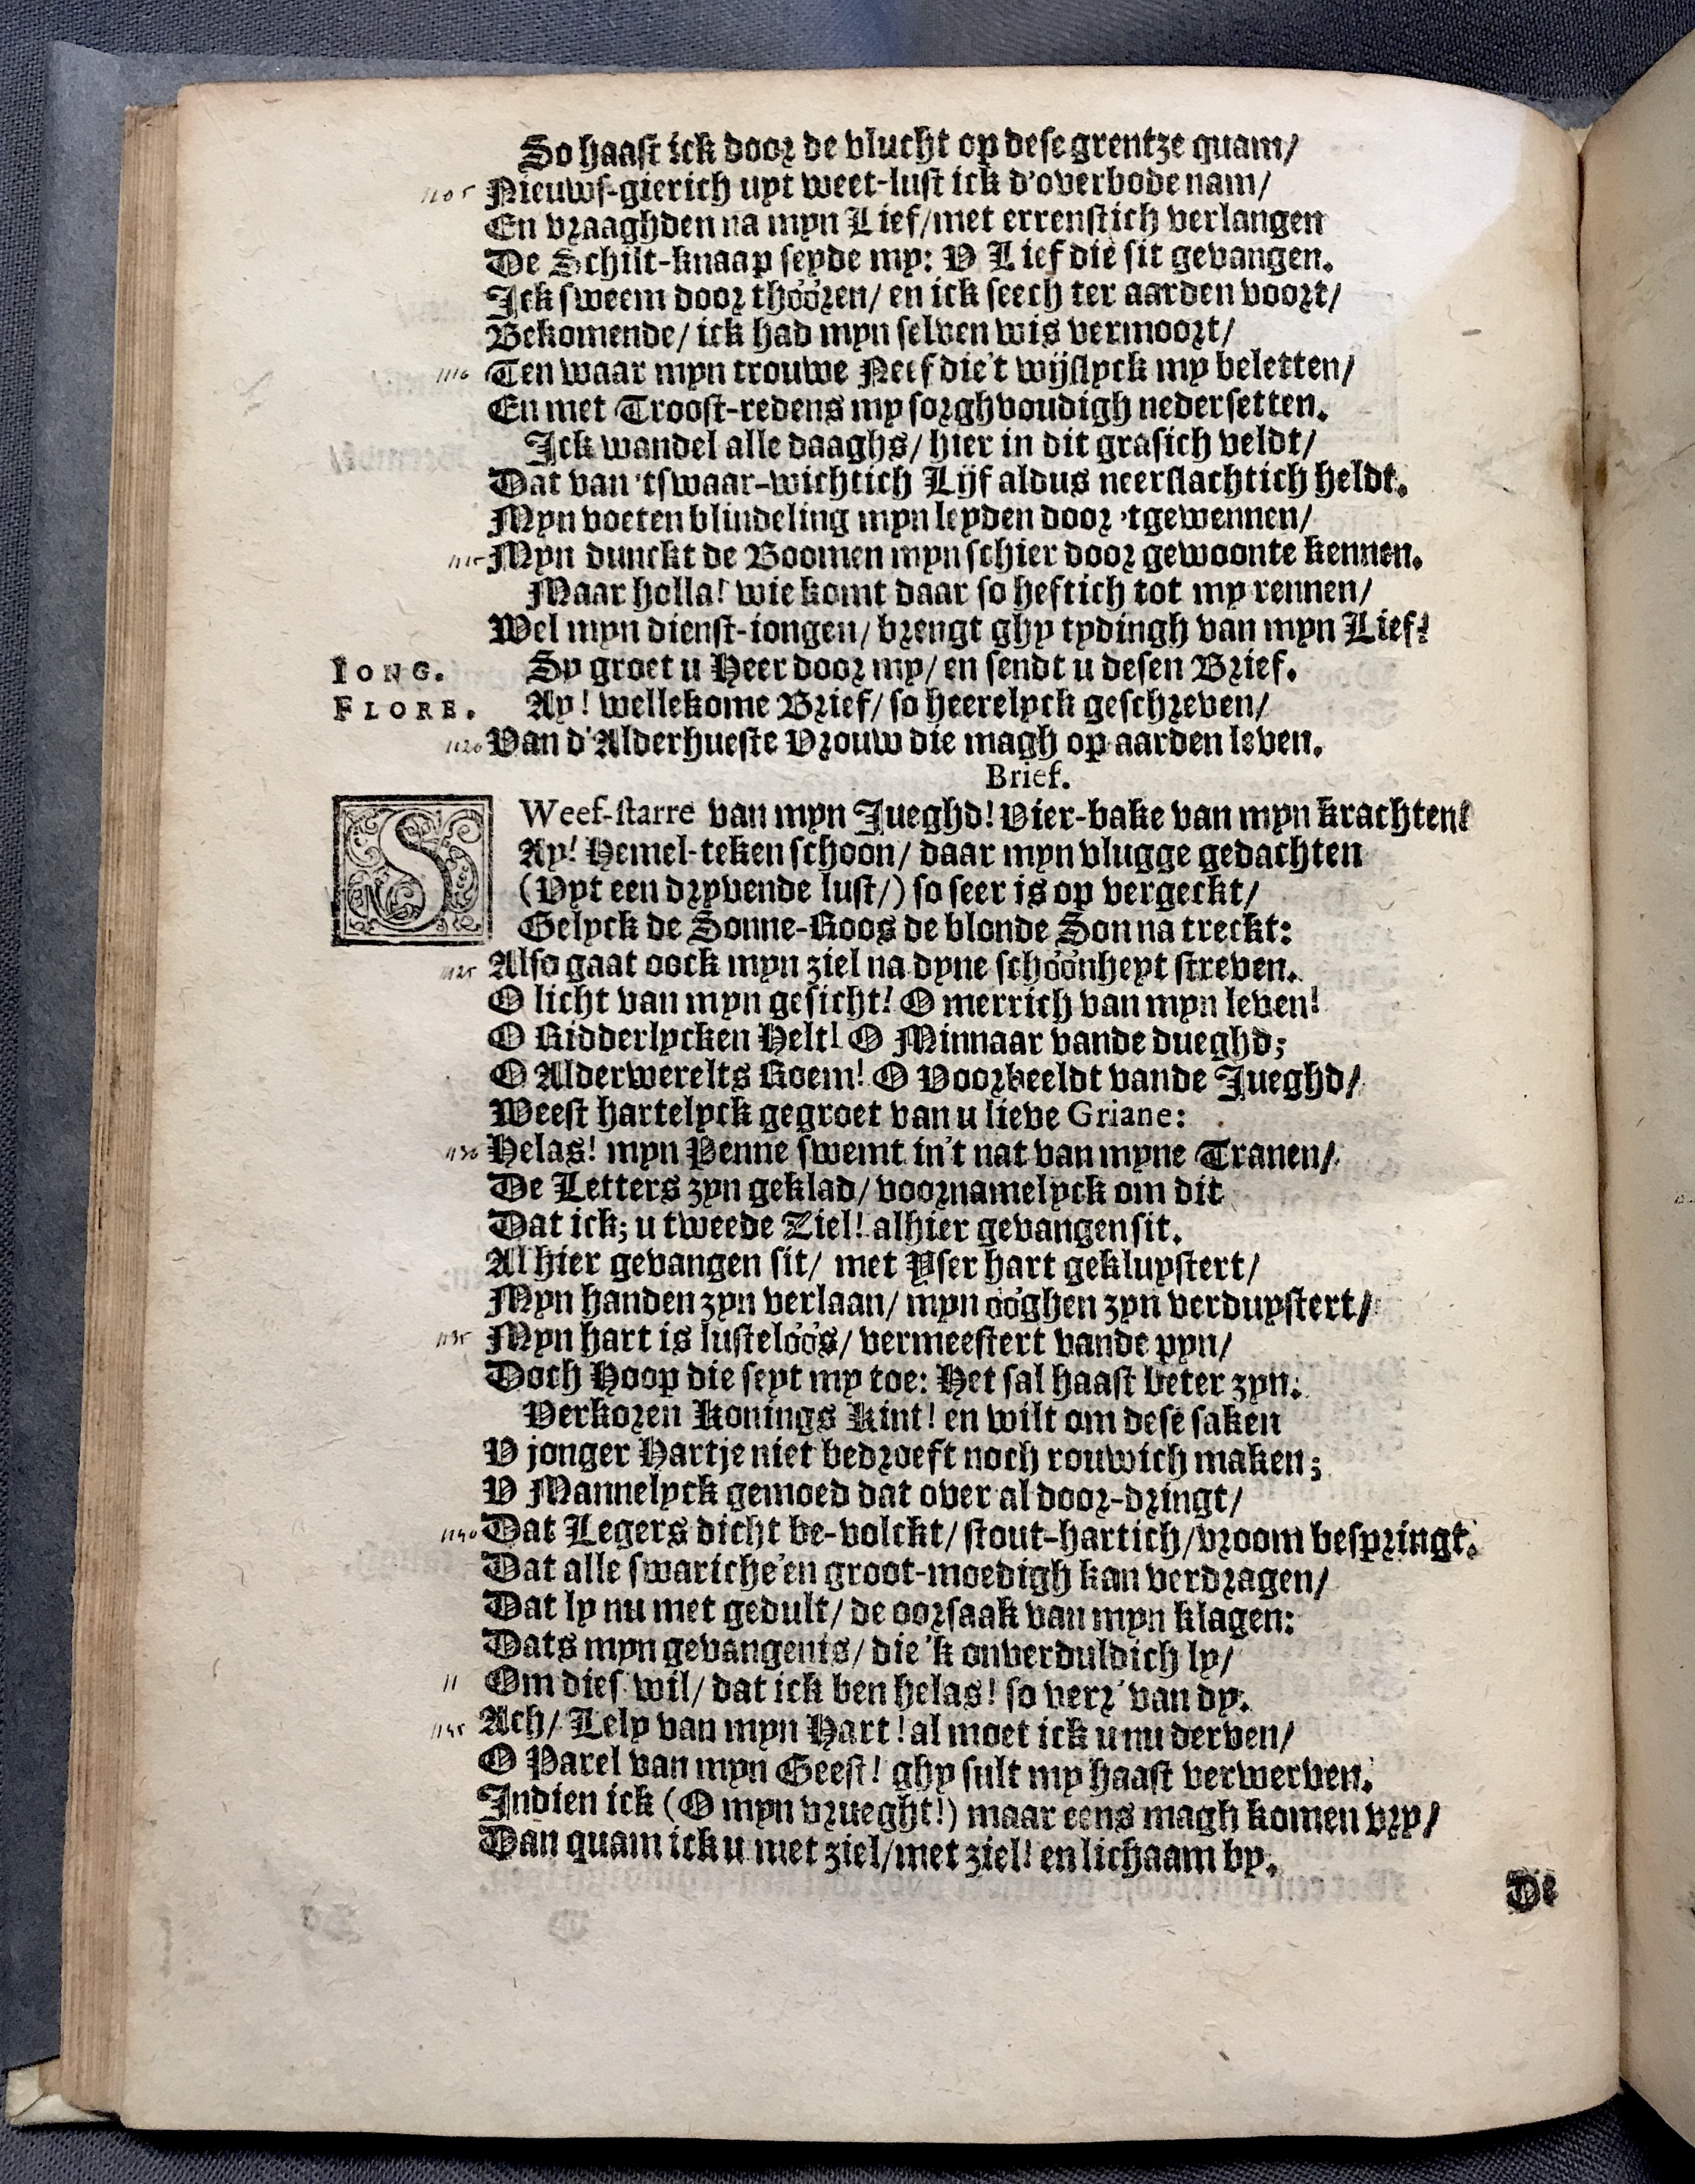 So haast ick door de vlucht op dese grentze quam/
1105 Nieuws-gierich uyt weet-lust ick d'overbode nam/
En vraaghden na myn Lief/met errenstich verlangen
De Schilt-knaap seyde my: V Lief die sit gevangen.
Ick sweem door thóóren/ en ick seech ter aarden voort/
Bekomende/ ick had myn selven wis vermoort/
1110 Ten waar myn trouwe Neef die't wijslyck my beletten/
En met Troost-redens my sorghvoudigh neder setten.
Ick wandel alle daaghs/ hier in dit grasich veldt/
Dat van 'tswaar-wichtich Lijf aldus neerslachtich heldt.
Myn voeten blindeling myn leyden door 'tgewennen/
1115 Myn dunckt de Boomen myn schier door gewoonte kennen.
Maar holla! wie komt daar so heftich tot my rennen/
Wel myn dienst-iongen/ brengt ghy tydingh van myn Lief?
IONG. Sy groet u Heer door my/ en sendt u desen Brief.
FLORE. Ay! wellekome Brief/ so heerelyck geschreven/
1120 Van d'Alderhueste Vrouw die magh op aarden leven.
Brief.
SWeef-starre van myn Jueghd! Vier-bake van myn krachten!
Ay! Hemel-teken schoon/ daar myn vlugge gedachten
(Vyt een dryvende lust/) so seer is op vergeckt/
Gelyck de Sonne-Roos de blonde Son na treckt:
1125 Also gaat oock myn ziel na dyne schóónheyt streven.
O licht van myn gesicht! O merrich van myn leven!
O Ridderlycken Helt! O Minnaar vande dueghd;
O Alderwerelts Roem! O Voorbeeldt vande Jueghd/
Weest hartelyck gegroet van u lieve Griane:
1130 Helas! myn Penne swemt in't nat van myne Tranen/
De Letters zyn geklad/ voornamelyck om dit
Dat ick; u tweede Ziel! alhier gevangen sit.
Al hier gevangen sit/ met Yser hart gekluystert/
Myn handen zyn verlaan/ myn óóghen zyn verduystert/
1135 Myn hart is lustelóós/ vermeestert vande pyn/
Doch Hoop die seyt my toe: Het sal haast beter zyn:
Verkoren Konings Kint! en wilt om dese saken
V jonger Hartje niet bedroeft noch rouwich maken;
V Mannelyck gemoed dat over al door-dringt/
1140 Dat Legers dicht be-volckt/ stout-hartich/vroom bespringt.
Dat alle swariche'en groot-moedigh kan verdragen/
Dat ly nu met gedult/ de oorsaak van myn klagen:
Dats myn gevangenis/ die 'k onverduldich ly/
11 Om dies wil/ dat ick ben helas! so verr' van dy.
1145 Ach/ Lely van myn Hart! al moet ick u nu derven/
O Parel van myn Geest! ghy sult my haast verwerven.
Indien ick (O myn vrueght!) maar eens magh komen vry/
Dan quam ick u met ziel/met ziel! en lichaam by.
De